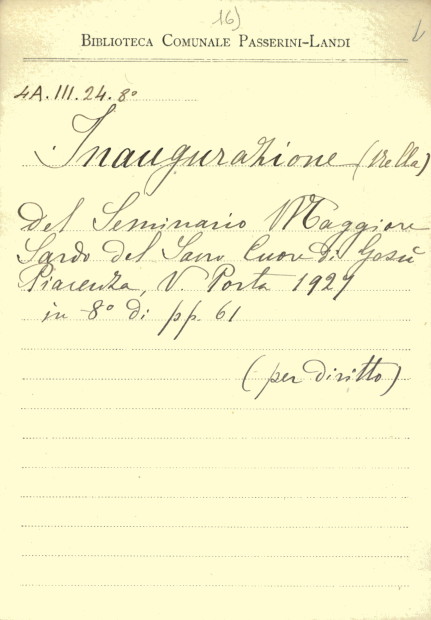 16)
BIBLIOTECA COMUNALE PASSERINI-LANDI
4A.III.24.8°
Inaugurazione (Nella)
Del Seminario Maggiore
Sardo del Sacro Cuore di Gesù
Piacenza, V. Porta 1927
in 8° di pp. 61
(per diritto)